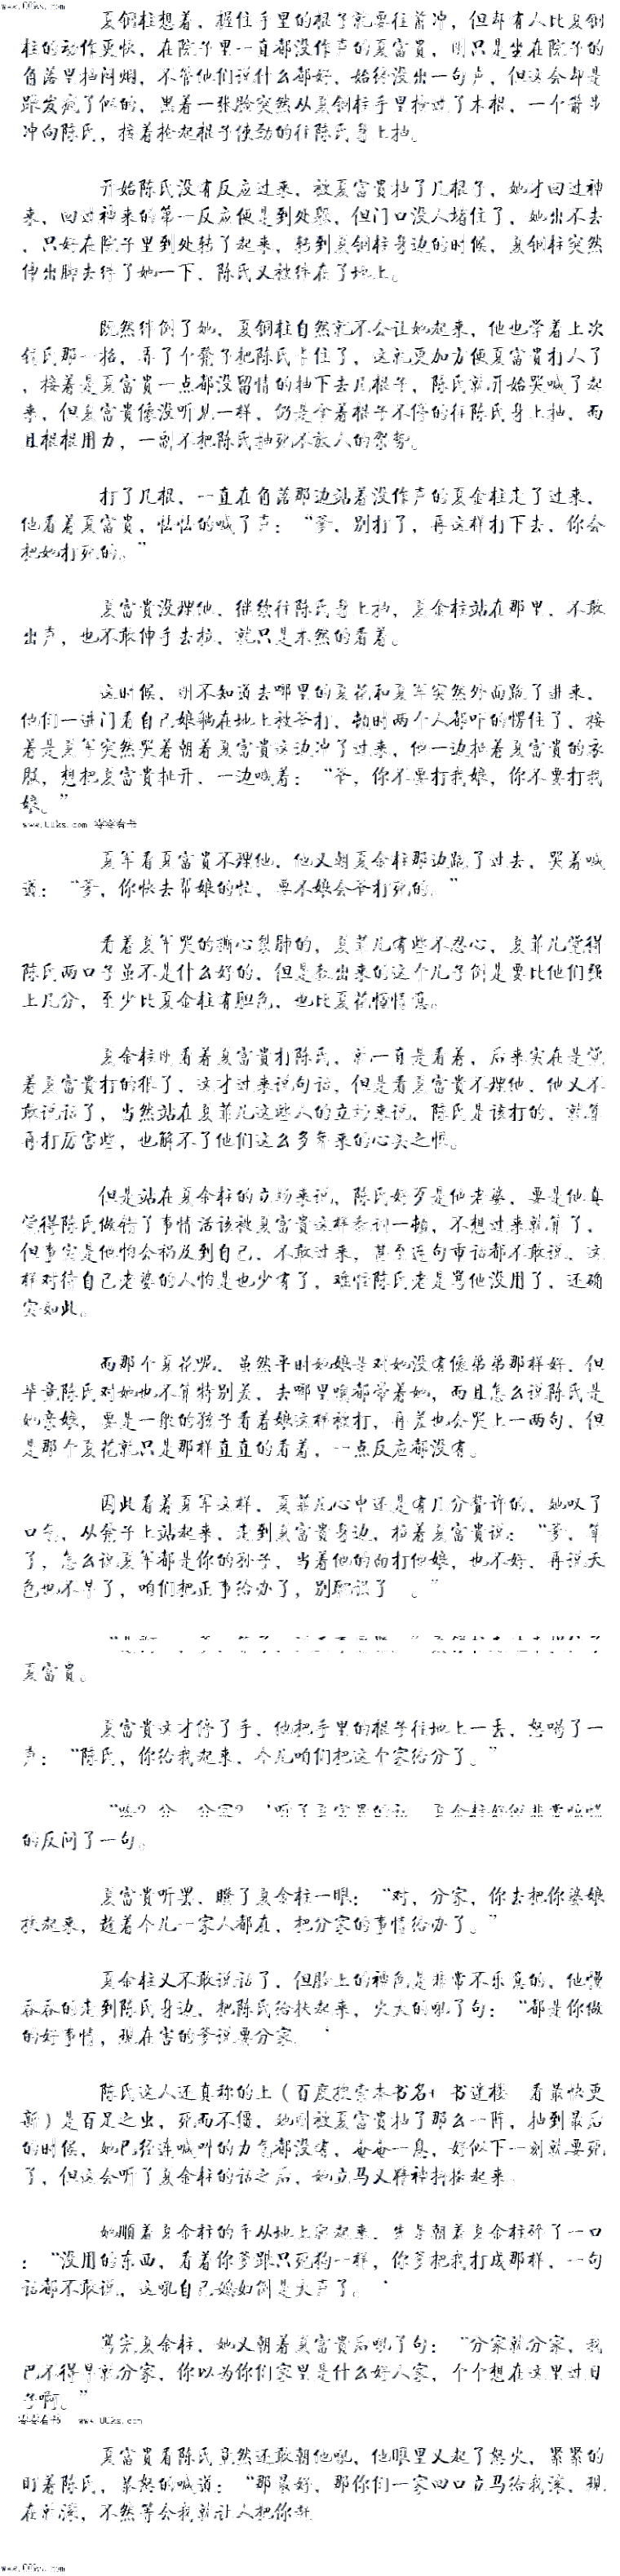 www.UUks.com
夏钢柱想着，握住手里的棍子就要往前冲，但却有人比夏钢
柱的动作更快，在院子里一直都没作声的夏富贵，刚只是坐在院子的
角落里抽闷烟，不管他们说什么都好，始终没出一句声，但这会却是
跟发疯了似的，黑着一张脸突然从夏钢柱手里抢过了木棍，一个箭步
冲向陈氏，接着抡起棍子使劲的往陈氏身上抽。
开始陈氏没有反应过来，被夏富贵抽了几棍子，她才回过神
来，回过神来的第一反应便是到处躲，但门口没人堵住了，她出不去
，只好在院子里到处转了起来，转到夏钢柱身边的时候，夏钢柱突然
伸出脚去绊了她一下，陈氏又被绊在了地上。
既然绊倒了她，夏钢柱自然就不会让她起来，他也学着上次
钱氏那一招，弄了个凳子把陈氏卡住了，这就更加方便夏富贵打人了
，接着是夏富贵一点都没留情的抽下去几棍子，陈氏就开始哭喊了起
来，但夏富贵像没听见一样，仍是拿着棍子不停的往陈氏身上抽，而
且棍棍用力，一副不把陈氏抽死不放人的架势。
打了几棍，一直在角落那边站着没作声的夏金柱走了过来，
他看着夏富贵，怯怯的喊了声：“爹，别打了，再这样打下去，你会
把她打死的。”
夏富贵没理他，继续往陈氏身上抽，夏金柱站在那里，不敢
出声，也不敢伸手去拉，就只是木然的看着。
这时候，刚不知道去哪里的夏花和夏军突然外面跑了进来，
他们一进门看自己娘躺在地上被爷打，顿时两个人都吓的愣住了，接
着是夏军突然哭着朝着夏富贵这边冲了过来，他一边拉着夏富贵的衣
服，想把夏富贵扯开，一边喊着：“爷，你不要打我娘，你不要打我
娘。”
www.UUks.com
夏军看夏富贵不理他，他又朝夏金柱那边跑了过去，哭着喊
道：“爹，你快去帮娘的忙，要不娘会爷打死的。”
看着夏军哭的撕心裂肺的，夏菲儿有些不忍心，夏菲儿觉得
陈氏两口子虽不是什么好的，但是教出来的这个儿子倒是要比他们强
上几分，至少比夏金柱有胆色，也比夏花恒情意。
夏金柱刚看着夏富贵打陈氏，就一直是看着，后来实在是觉
着夏富贵打的狠了，这才过来说句话，但是看夏富贵不理他，他又不
敢说话了，当然站在夏菲儿这些人的立场来说，陈氏是该打的，就算
再打厉害些，也解不了他们这么多年来的心头之恨。
但是站在夏金柱的立场来说，陈氏好歹是他老婆，要是他真
觉得陈氏做错了事情活该被夏富贵这样毒打一顿，不想过来就算了，
但事实是他怕会祸及到自己，不敢过来，甚至连句重话都不敢说，这
样对待自己老婆的人怕是也少有了，难怪陈氏老是骂他没用了，还确
实如此。
而那个夏花呢，虽然平时她娘是对她没有像弟弟那样好，但
毕竟陈氏对她也不算特别差，去哪里啥都带着她，而且怎么说陈氏是
她亲娘，要是一般的孩子看着娘这样被打，再差也会哭上一两句，但
是那个夏花就只是那样直直的看着，一点反应都没有。
因此看着夏军这样，夏菲儿心中还是有几分赞许的，她叹了
口气，从凳子上站起来，走到夏富贵身边，拉着夏富贵说：“爹，算
了，怎么说夏军都是你的孙子，当着他的面打他娘，也不好，再说天
色也不早了，咱们把正事给办了，别耽误了 。”
夏富贵。
夏富贵这才停了手，他把手里的棍子往地上一丢，怒喝了一
声：“陈氏，你给我起来，今儿咱们把这个家给分了。”
的反问了一句。
夏富贵听罢，瞪了夏金柱一眼：“对，分家，你去把你婆娘
扶起来，趁着今儿一家人都在，把分家的事情给办了。”
夏金柱又不敢说话了，但脸上的神色是非常不乐意的，他慢
吞吞的走到陈氏身边，把陈氏给扶起来，火大的吼了句：“都是你做
的好事情，现在害的爹说要分家
陈氏这人还真称的上（百度搜索本书名+ 书迷楼 看最快更
新）是百足之虫，死而不僵，她刚被夏富贵抽了那么一阵，抽到最后
的时候，她已经连喊叫的力气都没有，奄奄一息，好似下一刻就要死
了，但这会听了夏金柱的话之后，她立马又精神抖擞起来。
她顺着夏金柱的手从地上爬起来，先是朝着夏金柱碎了一口
：“没用的东西，看着你爹跟只死狗一样，你爹把我打成那样，一句
话都不敢说，这吼自己媳妇倒是大声了。
骂完夏金柱，她又朝着夏富贵后吼了句：“分家就分家，我
巴不得早就分家，你以为你们家里是什么好人家，个个想在这里过日
子啊。”
www.UUks.com
夏富贵看陈氏竟然还敢朝他吼，他眼里又起了怒火，累累的
盯着陈氏，暴怒的喊道：“那最好，那你们一家四口立马给我滚，现
在就滚，不然等会我就让人把你赶
www.UUks.com